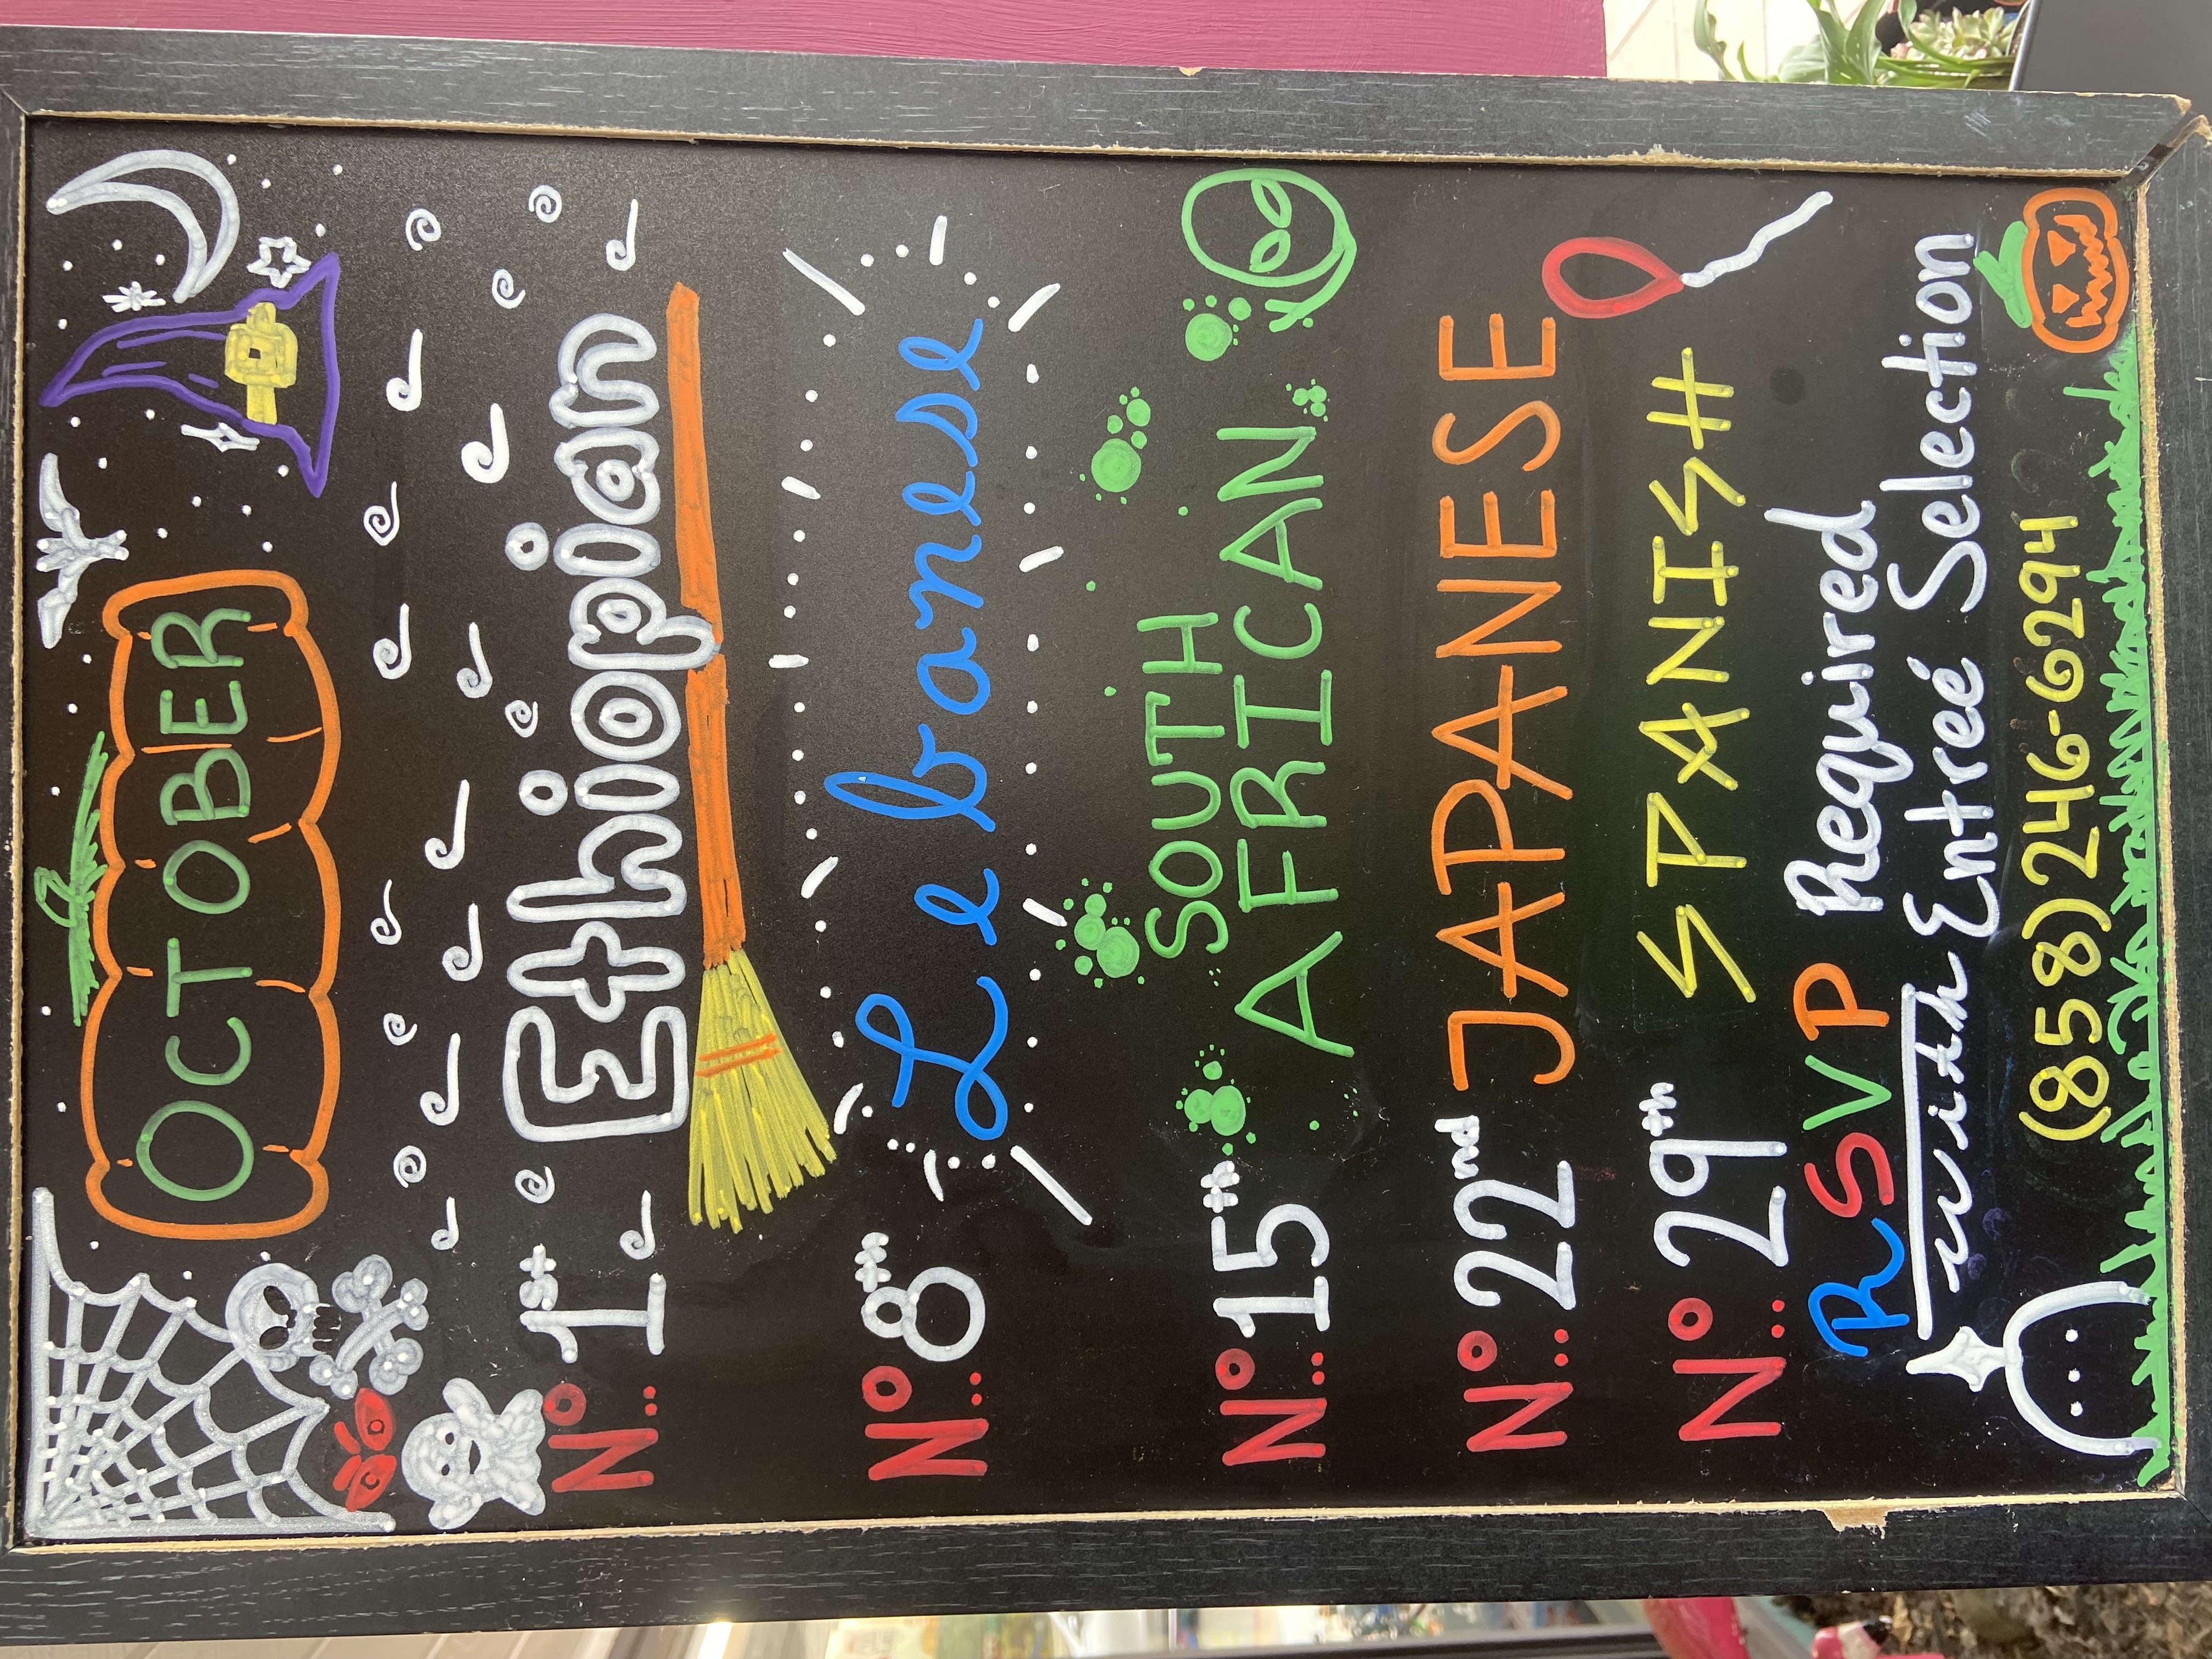 OCTOBER
Nº 1st Ethiopian
Nº 8th Lebanese
Nº 15th SOUTH AFRICAN
Nº 22nd JAPANESE
Nº 29th SPANISH
RSVP Required
with Entreé Selection
(858)246-6294